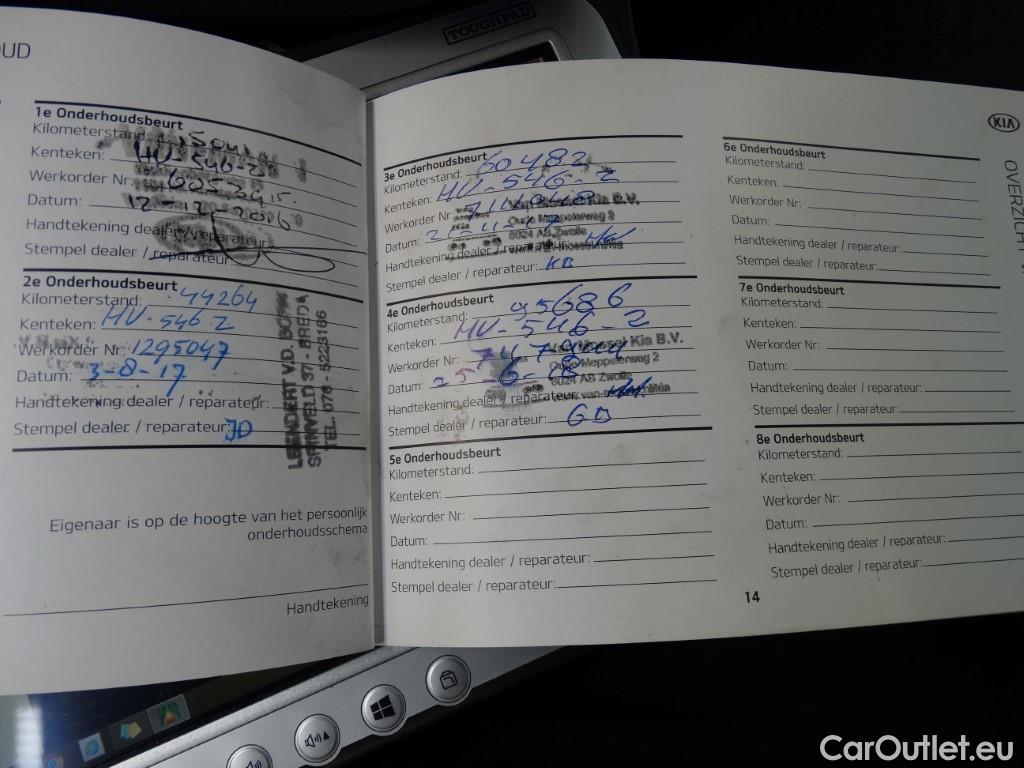 OUD
TOUGHPAD
1e Onderhoudsbeurt
Kilometerstand:
Kenteken: HV-546-Z
Werkorder Nr:
Datum: 12-12-2016
Handtekening dealer / reparateur:
Stempel dealer / reparateur:
2e Onderhoudsbeurt
Kilometerstand: 44264
Kenteken: HV-546-Z
Werkorder Nr: 1295047
Datum: 3-8-17
Handtekening dealer / reparateur:
Stempel dealer / reparateur: JD
SPINVELD 37 - BREDA
TEL. 076 - 5223166
Eigenaar is op de hoogte van het persoonlijk
onderhoudsschema
Handtekening
3e Onderhoudsbeurt
Kilometerstand: 60482
Kenteken: HV-546-Z
Werkorder Nr:
Datum:
Oude Meppelerweg 2
8024 AB Zwolle
Handtekening dealer / reparateur:
Stempel dealer / reparateur: KB
4e Onderhoudsbeurt
Kilometerstand: 95686
Kenteken: HV-546-Z
Werkorder Nr:
Van Mossel Kia B.V.
Datum: 25-6-18
Oude Meppelerweg 2
8024 AB Zwolle
Handtekening dealer / reparateur:
Stempel dealer / reparateur: GB
5e Onderhoudsbeurt
Kilometerstand:
Kenteken:
Werkorder Nr:
Datum:
Handtekening dealer / reparateur:
Stempel dealer / reparateur:
6e Onderhoudsbeurt
Kilometerstand:
Kenteken:
Werkorder Nr:
Datum:
Handtekening dealer / reparateur:
Stempel dealer / reparateur:
7e Onderhoudsbeurt
Kilometerstand:
Kenteken:
Werkorder Nr:
Datum:
Handtekening dealer / reparateur:
Stempel dealer / reparateur:
8e Onderhoudsbeurt
Kilometerstand:
Kenteken:
Werkorder Nr:
Datum:
Handtekening dealer / reparateur:
Stempel dealer / reparateur:
14
KIA
OVERZICHT
CarOutlet.eu